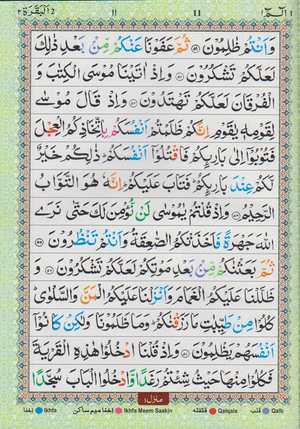 ٢ البقرة ١١ 11 الٓمّٓ ١
وَاَنۡتُمۡ ظٰلِمُوۡنَ ﴿۵۱﴾ ثُمَّ عَفَوۡنَا عَنۡكُمۡ مِّنۡۢ بَعۡدِ ذٰلِكَ
لَعَلَّكُمۡ تَشۡكُرُوۡنَ ﴿۵۲﴾ وَاِذۡ اٰتَيۡنَا مُوۡسَى الۡكِتٰبَ وَ
الۡفُرۡقَانَ لَعَلَّكُمۡ تَهۡتَدُوۡنَ ﴿۵۳﴾ وَاِذۡ قَالَ مُوۡسٰى
لِقَوۡمِهٖ يٰقَوۡمِ اِنَّكُمۡ ظَلَمۡتُمۡ اَنۡفُسَكُمۡ بِاتِّخَاذِكُمُ الۡعِجۡلَ
فَتُوۡبُوۡٓا اِلٰى بَارِئِكُمۡ فَاقۡتُلُوۡٓا اَنۡفُسَكُمۡ ؕ ذٰلِكُمۡ خَيۡرٌ
لَّكُمۡ عِنۡدَ بَارِئِكُمۡ ؕ فَتَابَ عَلَيۡكُمۡ ؕ اِنَّهٗ هُوَ التَّوَّابُ
الرَّحِيۡمُ ﴿۵۴﴾ وَاِذۡ قُلۡتُمۡ يٰمُوۡسٰى لَنۡ نُّؤۡمِنَ لَكَ حَتّٰى نَرَى
اللّٰهَ جَهۡرَةً فَاَخَذَتۡكُمُ الصّٰعِقَةُ وَاَنۡتُمۡ تَنۡظُرُوۡنَ ﴿۵۵﴾
ثُمَّ بَعَثۡنٰكُمۡ مِّنۡۢ بَعۡدِ مَوۡتِكُمۡ لَعَلَّكُمۡ تَشۡكُرُوۡنَ ﴿۵۶﴾ وَ
ظَلَّلۡنَا عَلَيۡكُمُ الۡغَمَامَ وَاَنۡزَلۡنَا عَلَيۡكُمُ الۡمَنَّ وَالسَّلۡوٰى ؕ
كُلُوۡا مِنۡ طَيِّبٰتِ مَا رَزَقۡنٰكُمۡ ؕ وَمَا ظَلَمُوۡنَا وَلٰكِنۡ كَانُوۡٓا
اَنۡفُسَهُمۡ يَظۡلِمُوۡنَ ﴿۵۷﴾ وَاِذۡ قُلۡنَا ادۡخُلُوۡا هٰذِهِ الۡقَرۡيَةَ
فَكُلُوۡا مِنۡهَا حَيۡثُ شِئۡتُمۡ رَغَدًا وَّادۡخُلُوا الۡبَابَ سُجَّدًا
منزل ١
اخفا Ikhfa اخفا میم ساکن Ikhfa Meem Saakin قلقله Qalqala قلب Qalb